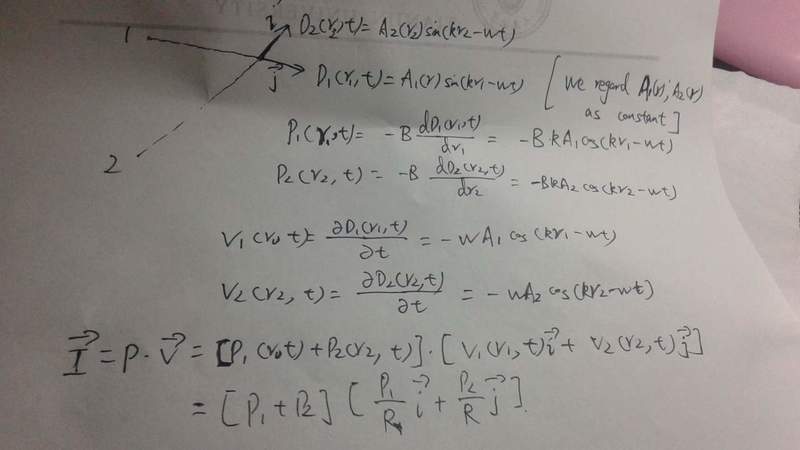 i⃗ D₂(r₂,t) = A₂(r₂) sin(kr₂-wt)
1
j⃗ D₁(r₁,t) = A₁(r) sin(kr₁-wt) [we regard A₁(r), A₂(r)
as constant]
P₁(r₁,t) = -B dD₁(r₁,t)/dr₁ = -BkA₁cos(kr₁-wt)
2
P₂(r₂,t) = -B dD₂(r₂,t)/dr₂ = -BkA₂cos(kr₂-wt)
V₁(r₁,t) = ∂D₁(r₁,t)/∂t = -wA₁cos(kr₁-wt)
V₂(r₂,t) = ∂D₂(r₂,t)/∂t = -wA₂cos(kr₂-wt)
I⃗ = P·V⃗ = [P₁(r₁,t)+P₂(r₂,t)]·[V₁(r₁,t)i⃗+V₂(r₂,t)j⃗]
= [P₁+P₂][P₁/R i⃗+P₂/R j⃗].